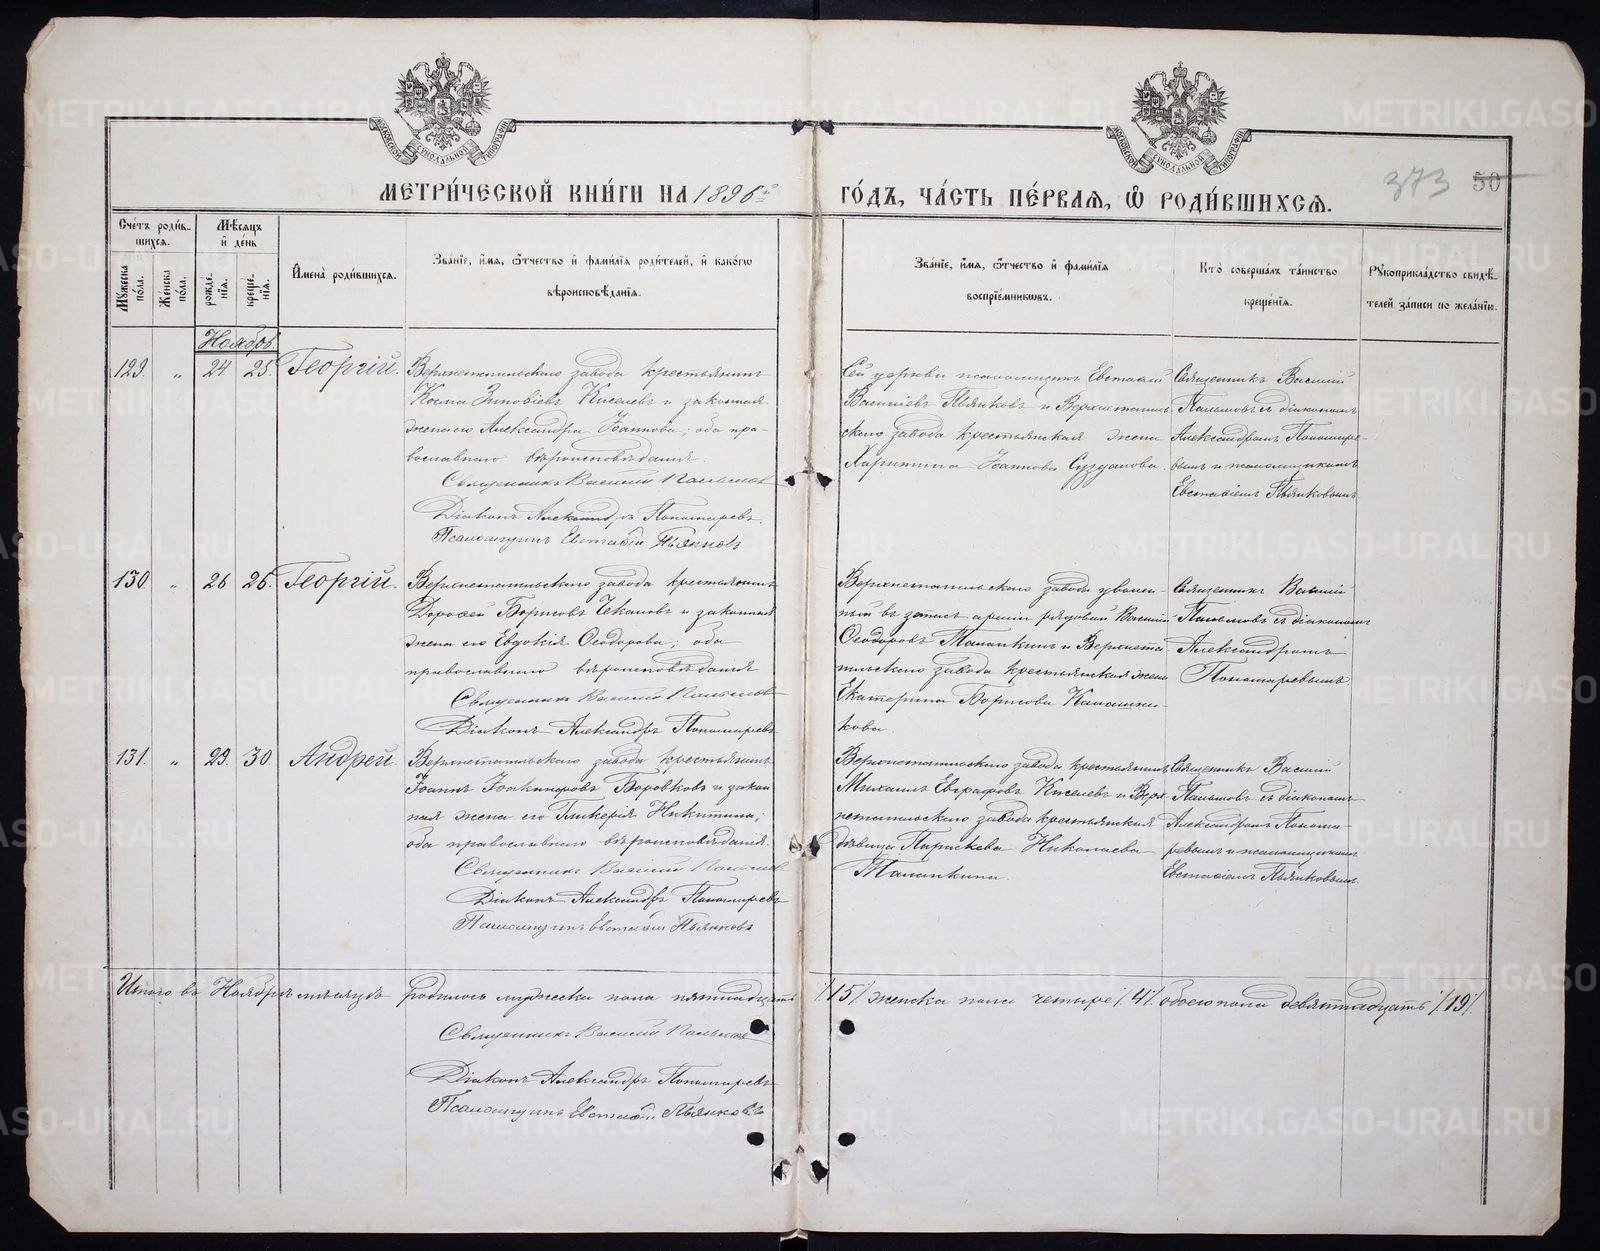 МЕТРИ́ЧЕСКОЙ КНИ́ГИ НА 1896й ГО́ДЪ, ЧА́СТЬ ПЕ́РВАѦ, Ѿ РОДИ́ВШИХСѦ.
373 50
Сче́тъ роди́в-
шихсѧ.
Мѣ́сѧцъ
и҆ де́нь
Мꙋ́жеска по́ла.
Же́нска по́ла.
рожде́-
нїѧ.
креще́-
нїѧ.
И҆мена̀ роди́вшихсѧ.
Зва́нїе, и҆́мѧ, ѻ҆́тчество и҆ фами́лїѧ роди́телей, и҆ како́гѡ
вѣроисповѣ́данїѧ.
Зва́нїе, и҆́мѧ, ѻ҆́тчество и҆ фами́лїѧ
воспрїе́мникѡвъ.
Кто̀ соверша́лъ та́инство
креще́нїѧ.
Рꙋкоприкла́дство свидѣ́-
телей за́писи по жела́нїю.
Ноябрь
129. „ 24 25. Георгій.
Верхнетагильскаго завода крестьянинъ
Косма Зиновіевъ Киселевъ и законная
жена его Александра Іоаннова; оба пра-
вославнаго вѣроисповѣданія.
Священникъ Василій
Діаконъ Александръ Пономаревъ.
Псаломщикъ Евстафій Пьянковъ
Сей церкви псаломщикъ Евстафій
Васильевъ Пьянковъ и Верхнетагиль-
скаго завода крестьянская жена
Харитина Іоаннова
Священникъ Василій
съ діакономъ
Александромъ Пономаре-
вымъ и псаломщикомъ
Евстафіемъ Пьянковымъ.
130 „ 26 26. Георгій.
Верхнетагильскаго завода крестьянинъ
Дороѳей Борисовъ Чекановъ и законная
жена его Евдокія Ѳеодорова; оба
православнаго вѣроисповѣданія
Священникъ Василій
Діаконъ Александръ Пономаревъ
Верхнетагильскаго завода уволен-
ный въ запасъ арміи рядовой Василій
Ѳеодоровъ и Верхнета-
гильскаго завода крестьянская жена
Екатерина Борисова Калашни-
кова.
Священникъ Василій
съ діакономъ
Александромъ
Пономаревымъ.
131. „ 29. 30. Андрей.
Верхнетагильскаго завода крестьянинъ
Іоаннъ Іоакимовъ Боровковъ и закон-
ная жена его Гликерія Никитина;
оба православнаго вѣроисповѣданія.
Священникъ Василій
Діаконъ Александръ Пономаревъ
Псаломщикъ Евстафій Пьянковъ
Верхнетагильскаго завода крестьянинъ
Михаилъ Евграфовъ Киселевъ и Верх-
нетагильскаго завода крестьянская
дѣвица Параскева Николаева
Священникъ Василій
съ діакономъ
Александромъ Понома-
ревымъ и псаломщикомъ
Евстафіемъ Пьянковымъ.
Итого въ Ноябрѣ мѣсяцѣ родилось мужеска пола пятнадцать /15/ женска пола четыре /4/ обоего пола девятнадцать /19/.
Священникъ Василій
Діаконъ Александръ Пономаревъ
Псаломщикъ Евстафій Пьянковъ
METRIKI.GASO-URAL.RU